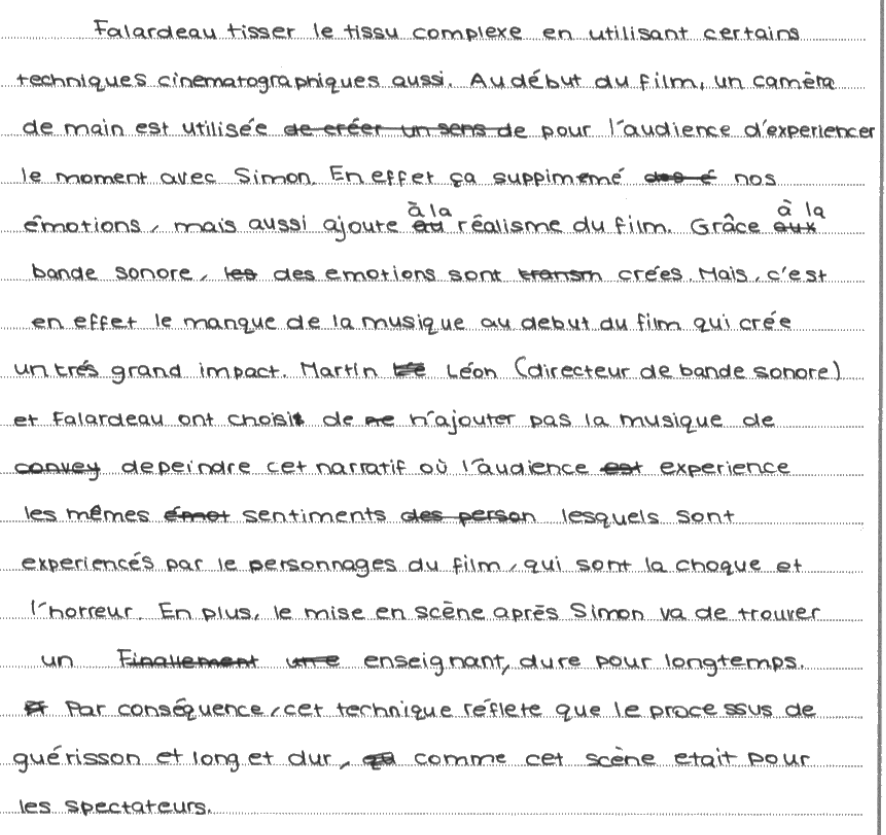 Falardeau tisser le tissu complexe en utilisant certains
techniques cinematographiques aussi. Au début du film, un camèra
de main est utilisée de créer un sens de pour l'audience d'experiencer
le moment avec Simon. En effet ça suppimemé des é nos
émotions, mais aussi ajoute au à la réalisme du film. Grâce aux à la
bande sonore, les des emotions sont transm crées. Mais, c'est
en effet le manque de la musique au debut du film qui crée
un trés grand impact. Martin Léon (directeur de bande sonore)
et Falardeau ont choisit de ne n'ajouter pas la musique de
convey depeindre cet narratif où l'audience est experience
les mêmes émot sentiments des person lesquels sont
experiencés par le personnages du film, qui sont la choque et
l'horreur. En plus, le mise en scène après Simon va de trouver
un Finallement une enseignant, dure pour longtemps.
Et Par conséquence, cet technique réflete que le processus de
guérisson et long et dur, comme cet scène etait pour
les spectateurs.